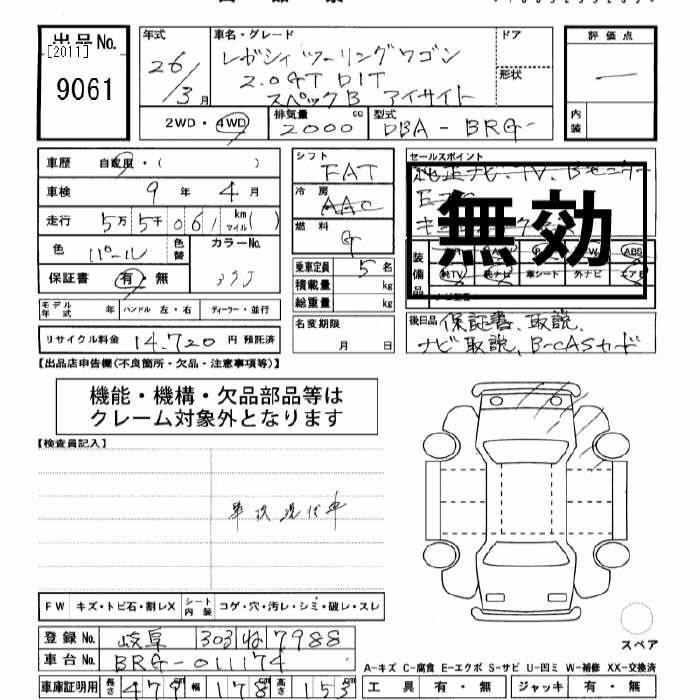 出品No.
[2011]
9061
年式
26/3月
車名・グレード
レガシィツーリングワゴン
2.0GT DIT
スペックB アイサイト
ドア
形状
評価点
内装
2WD・4WD
排気量
2000 cc
型式
DBA-BRG-
車歴 自家用・( )
車検 9年4月
走行 5万5千061 km マイル( )
色 パール 色替
カラーNo.
37J
保証書 有・無
モデル年式 年 ハンドル 左・右 ディーラー・並行
リサイクル料金 14,720 円 預託済
シフト
FAT
冷房
AAC
燃料
G
乗車定員 5名
積載量 kg
総重量 kg
名変期限
月 日
セールスポイント
純正ナビ、TV、Bモニター
無効
装備品
ABS
純TV 純ナビ 革シート 外ナビ エアB
後日品 保証書、取説、
ナビ取説、B-CASカード
【出品店申告欄(不良箇所・欠品・注意事項等)】
機能・機構・欠品部品等は
クレーム対象外となります
【検査員記入】
車次現代車
FW キズ・トビ石・割レX シート内装 コゲ・穴・汚レ・シミ・破レ・スレ
スペア
登録No. 岐阜 303 ね 7988
車台No. BRG-011174
A-キズ C-腐食 E-エクボ S-サビ U-凹ミ W-補修 XX-交換済
車庫証明用 長さ 479 cm 幅 178 cm 高さ 153 cm
工具 有・無 ジャッキ 有・無